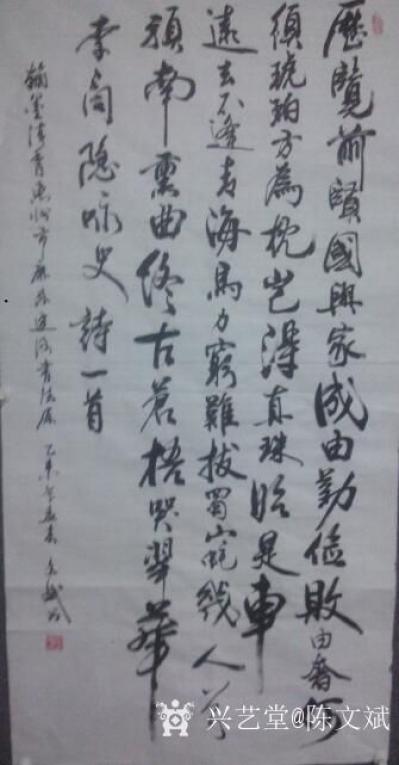 歷覽前賢國與家成由勤儉敗由奢何
須琥珀方為枕豈得真珠始是車
遠去不逢青海馬力窮難拔蜀山蛇幾人曾
預南熏曲終古蒼梧哭翠華
李商隱咏史詩一首
翰墨清香惠州市廉政建設書法展 乙未年春 文斌
兴艺堂@陈文斌